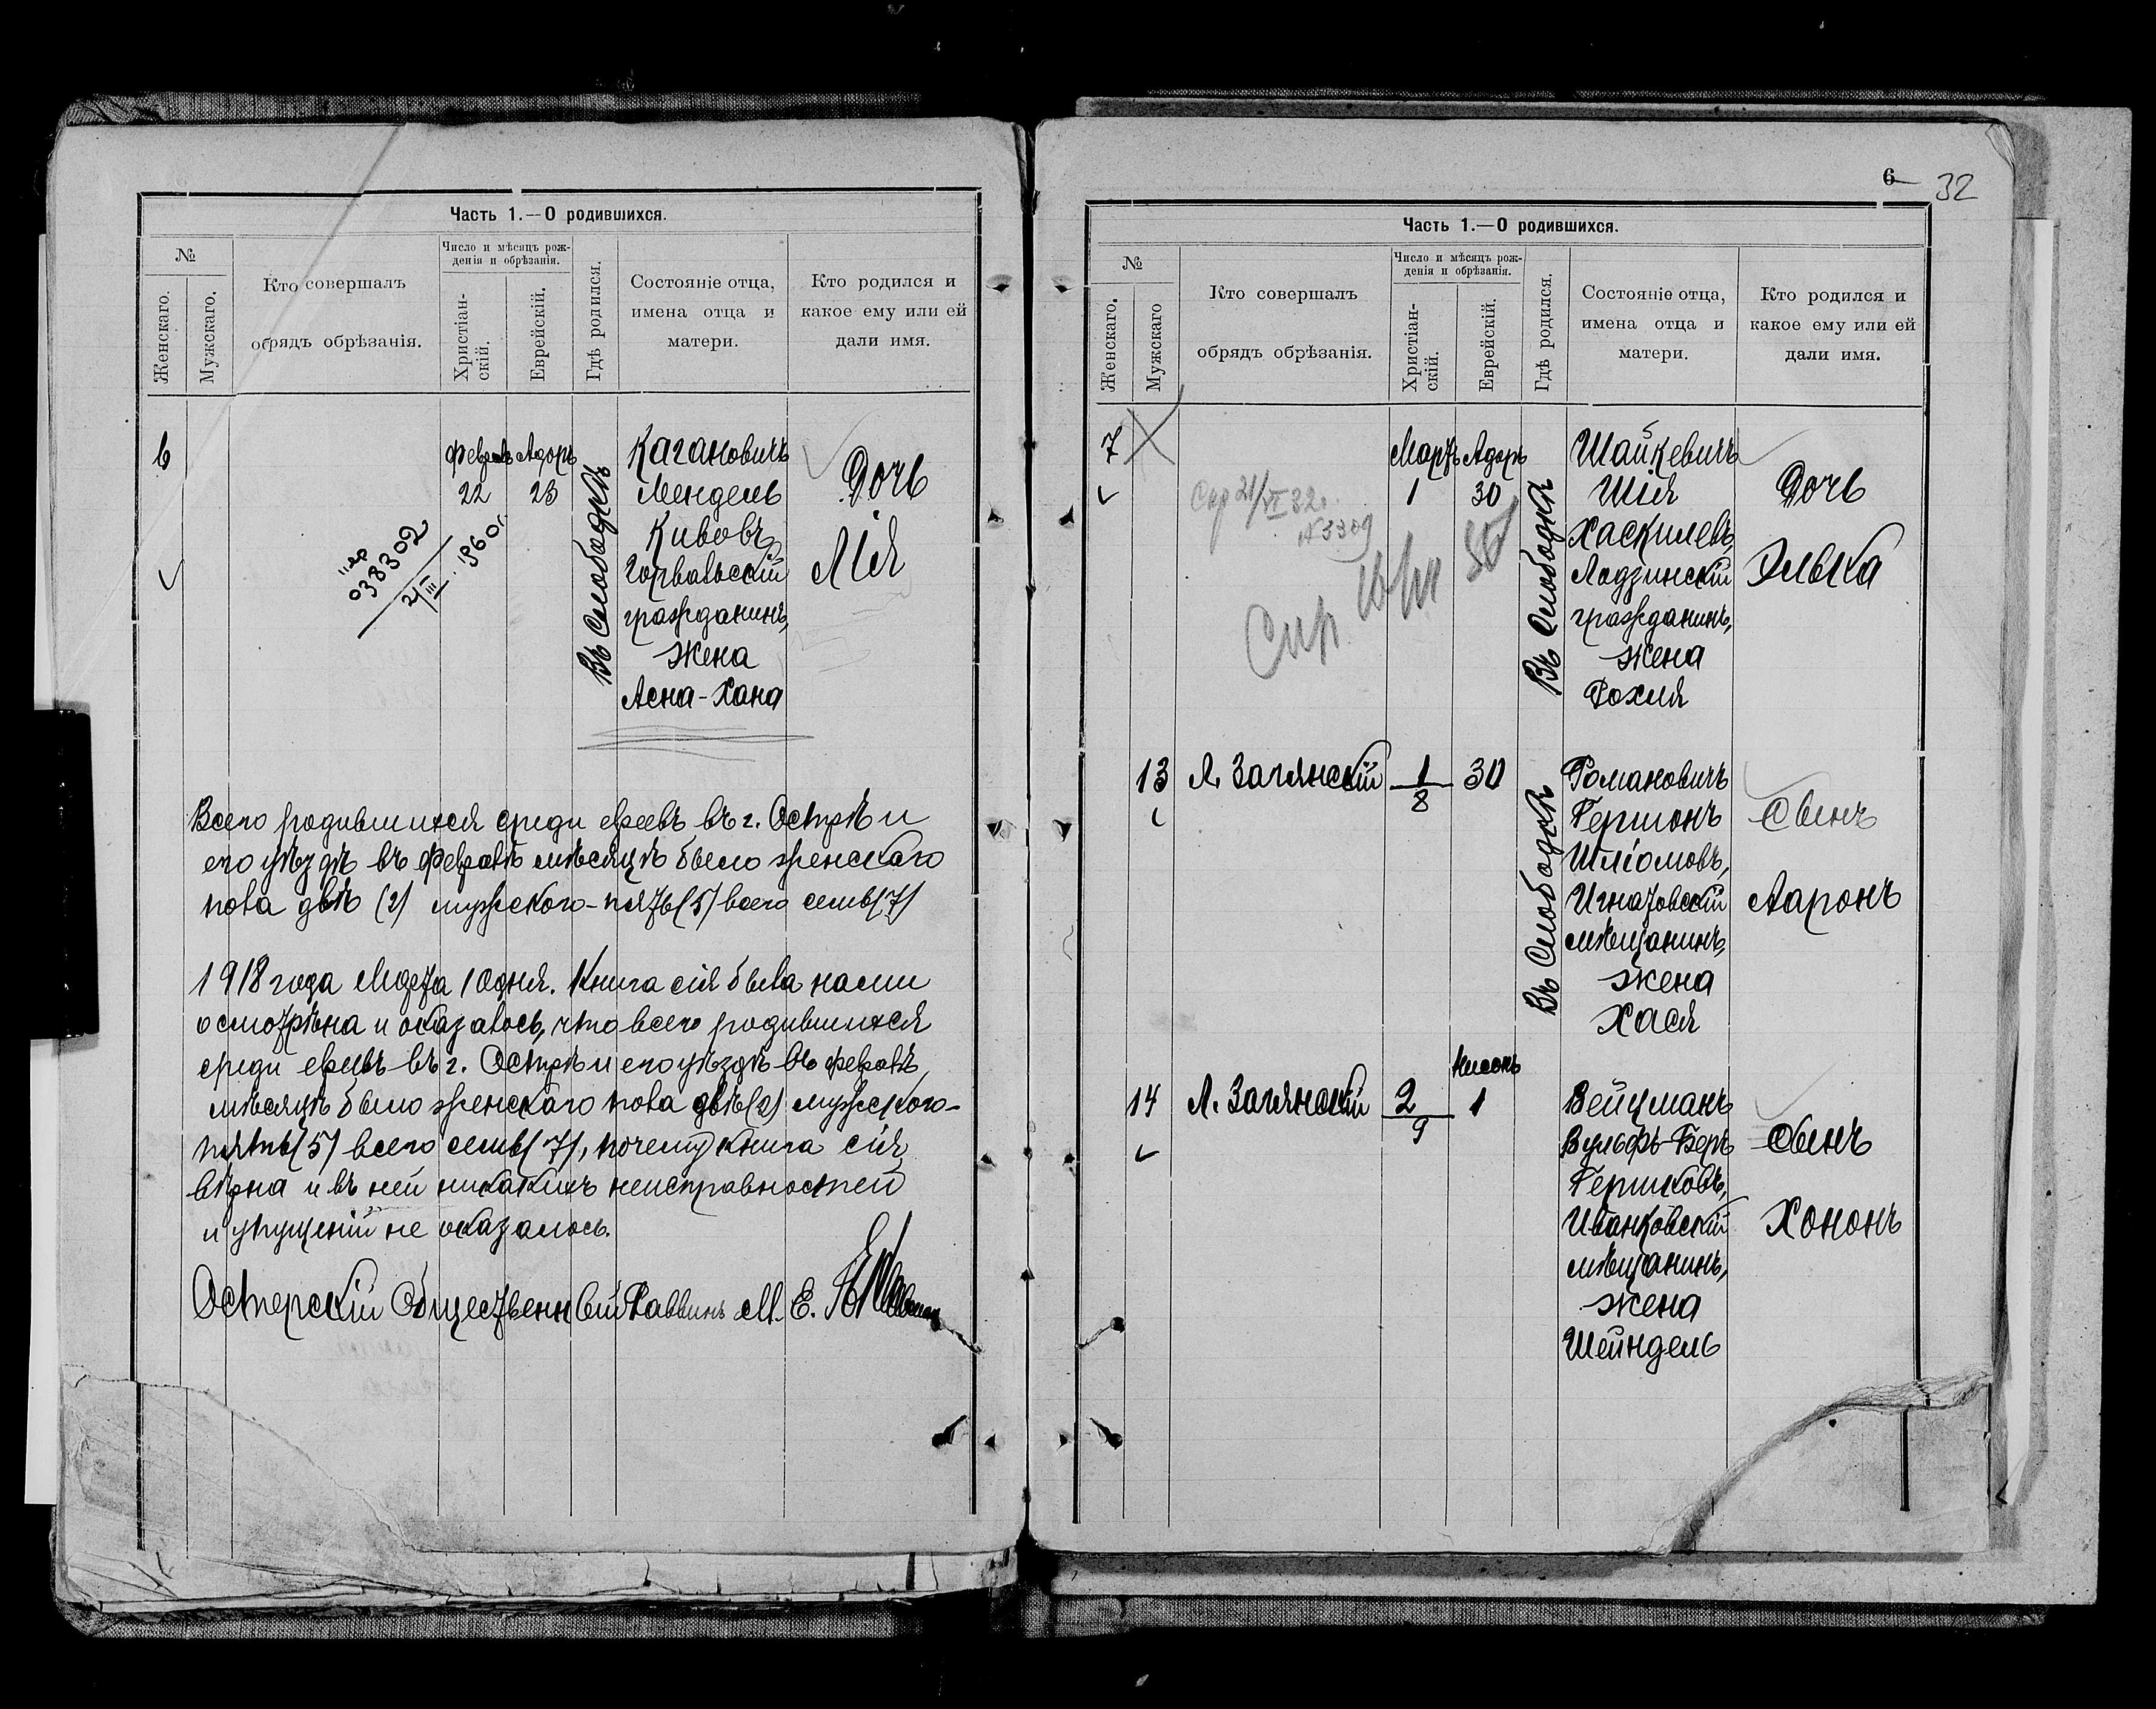 Часть 1.—О родившихся.
№
Женскаго.
Мужскаго.
Кто совершалъ
обрядъ обрѣзанія.
Число и мѣсяцъ рож-
денія и обрѣзанія.
Христіан-
скій.
Еврейскій.
Гдѣ родился.
Состояніе отца,
имена отца и
матери.
Кто родился и
какое ему или ей
дали имя.
6
038302
21/III 1960 г.
Февраль
22
Адоръ
23
Въ Слободкѣ
Кагановичъ
Мендель
Кивовъ,
Горвальскій
гражданинъ,
жена
Асна-Хана
Дочь
Лія
Всего родившихся среди евреевъ въ г. Острѣ и
его уѣздѣ въ февралѣ мѣсяцѣ было женскаго
пола двѣ (2) мужского-пять (5) всего семь (7)
1918 года Марта 10 дня. Книга сія была нами
осмотрѣна и оказалось, что всего родившихся
среди евреевъ въ г. Острѣ и его уѣздѣ въ февралѣ
мѣсяцѣ было женскаго пола двѣ (2) мужского-
пять (5) всего семь (7), почему книга сія
вѣрна и въ ней никакихъ неисправностей
и упущеній не оказалось.
Остерскій Общественный Раввинъ М. Е.
6
32
Часть 1.—О родившихся.
№
Женскаго.
Мужскаго
Кто совершалъ
обрядъ обрѣзанія.
Число и мѣсяцъ рож-
денія и обрѣзанія.
Христіан-
скій.
Еврейскій.
Гдѣ родился.
Состояніе отца,
имена отца и
матери.
Кто родился и
какое ему или ей
дали имя.
7
Спр 21/VI 32 г.
№ 3309
Спр.
Мартъ
1
Адоръ
30
Въ Слободкѣ
Шайкевичъ
Шія
Хаскилевъ,
Лодзинскій
гражданинъ,
жена
Рохля
Дочь
Элька
13
Л. Загянскій
1/8
30
Въ Слободкѣ
Романовичъ
Гершонъ
Шліомовъ,
Игнатовскій
мѣщанинъ,
жена
Хася
Сынъ
Ааронъ
14
Л. Загянскій
2/9
Нисонъ
1
Вейцманъ
Вульфъ-Беръ
Гершковъ,
Иванковскій
мѣщанинъ,
жена
Шейндель
Сынъ
Хононъ